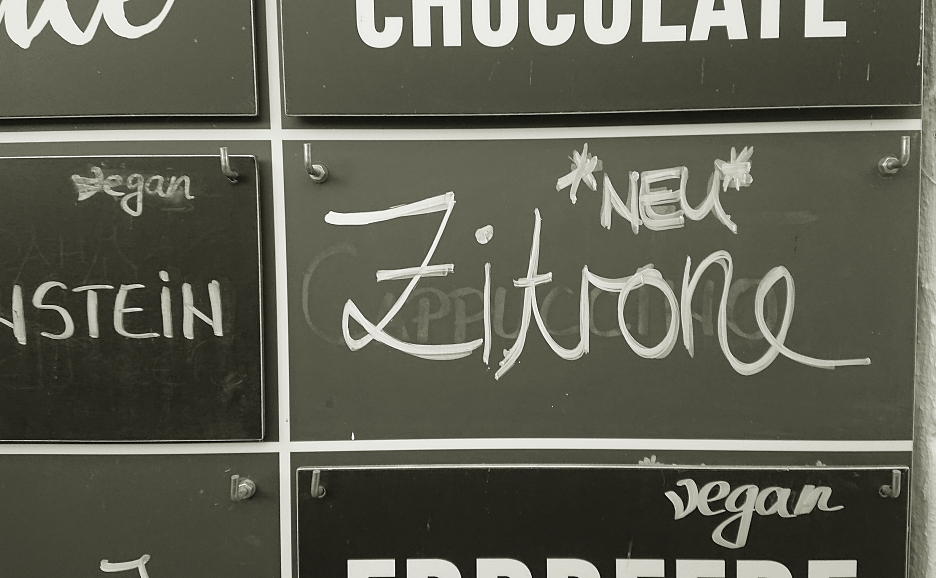 CHOCOLATE
vegan
NSTEIN
*NEU*
Zitrone
CAPPUCCINO
vegan
ERDBEERE